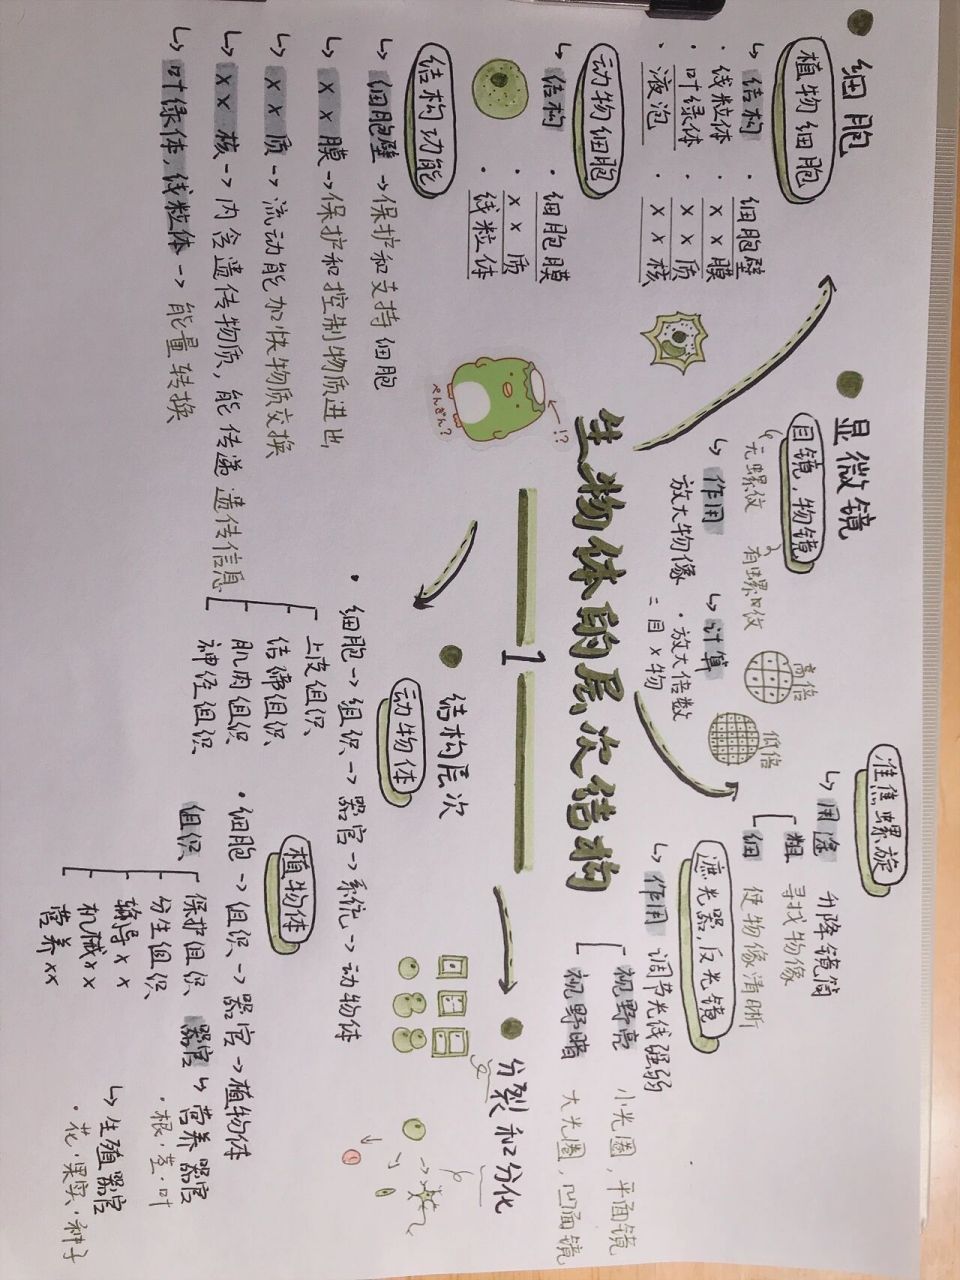 生物体的层次结构
1
细胞
植物细胞
↳ 结构
· 细胞壁
· 线粒体
· ××膜
· 叶绿体
· ××质
· 液泡
· ××核
动物细胞
↳ 结构
· 细胞膜
· ××质
· 线粒体
结构功能
↳ 细胞壁→保护和支持细胞
↳ ××膜→保护和控制物质进出
↳ ××质→流动能加快物质交换
↳ ××核→内含遗传物质,能传递遗传信息
↳ 叶绿体,线粒体→能量转换
!?
ぺんぎん?
显微镜
目镜,物镜
无螺纹 有螺纹
↳ 作用
放大物像
↳ 计算
· 放大倍数
= 目×物
高倍
低倍
准焦螺旋
↳ 用途 升降镜筒
粗 寻找物像
细 使物像清晰
遮光器,反光镜
↳ 作用 调节光线强弱
视野亮 小光圈,平面镜
视野暗 大光圈,凹面镜
结构层次
动物体
· 细胞→组织→器官→系统→动物体
上皮组织
结缔组织
肌肉组织
神经组织
植物体
· 细胞→组织→器官→植物体
组织
保护组织
分生组织
输导××
机械××
营养××
器官 ↳ 营养器官
· 根·茎·叶
↳ 生殖器官
· 花·果实·种子
分裂和分化